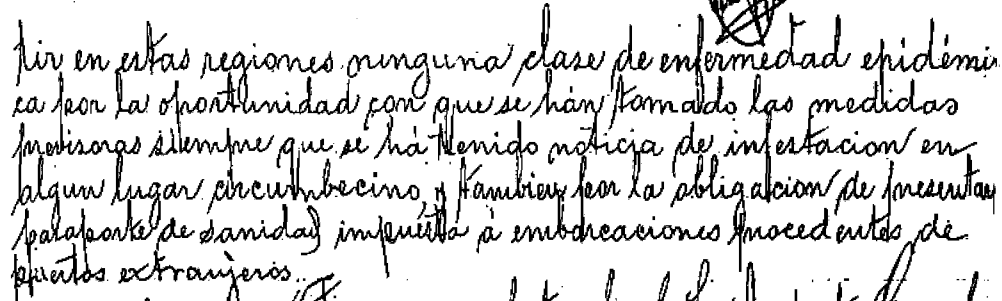 tir en estas regiones ninguna clase de enfermedad epidémi-
ca por la oportunidad con que se hán tomado las medidas
previsoras siempre que se há tenido noticia de infestacion en
algun lugar circumbecino, y tambien por la obligacion de presentar
pasaporte de sanidad impuesta à embarcaciones procedentes de
puertos extranjeros.